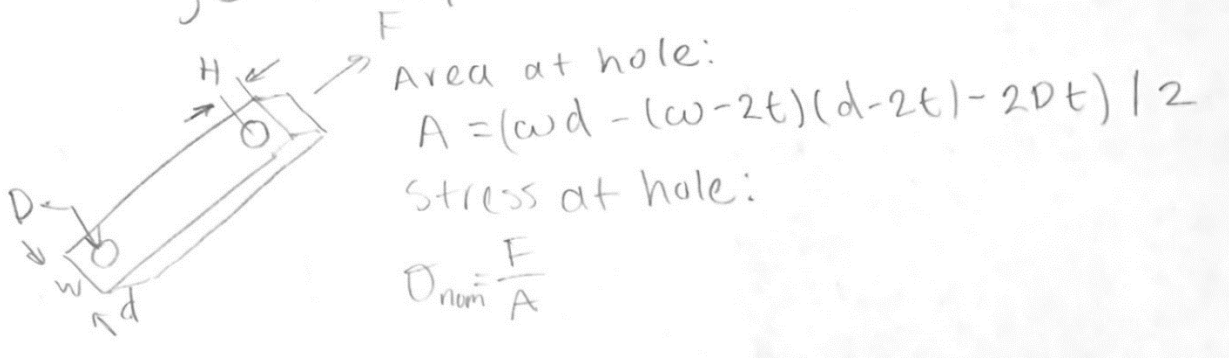 F
H
Area at hole:
A = (wd - (w-2t)(d-2t) - 2Dt) / 2
Stress at hole:
D
σnom = F/A
w
d